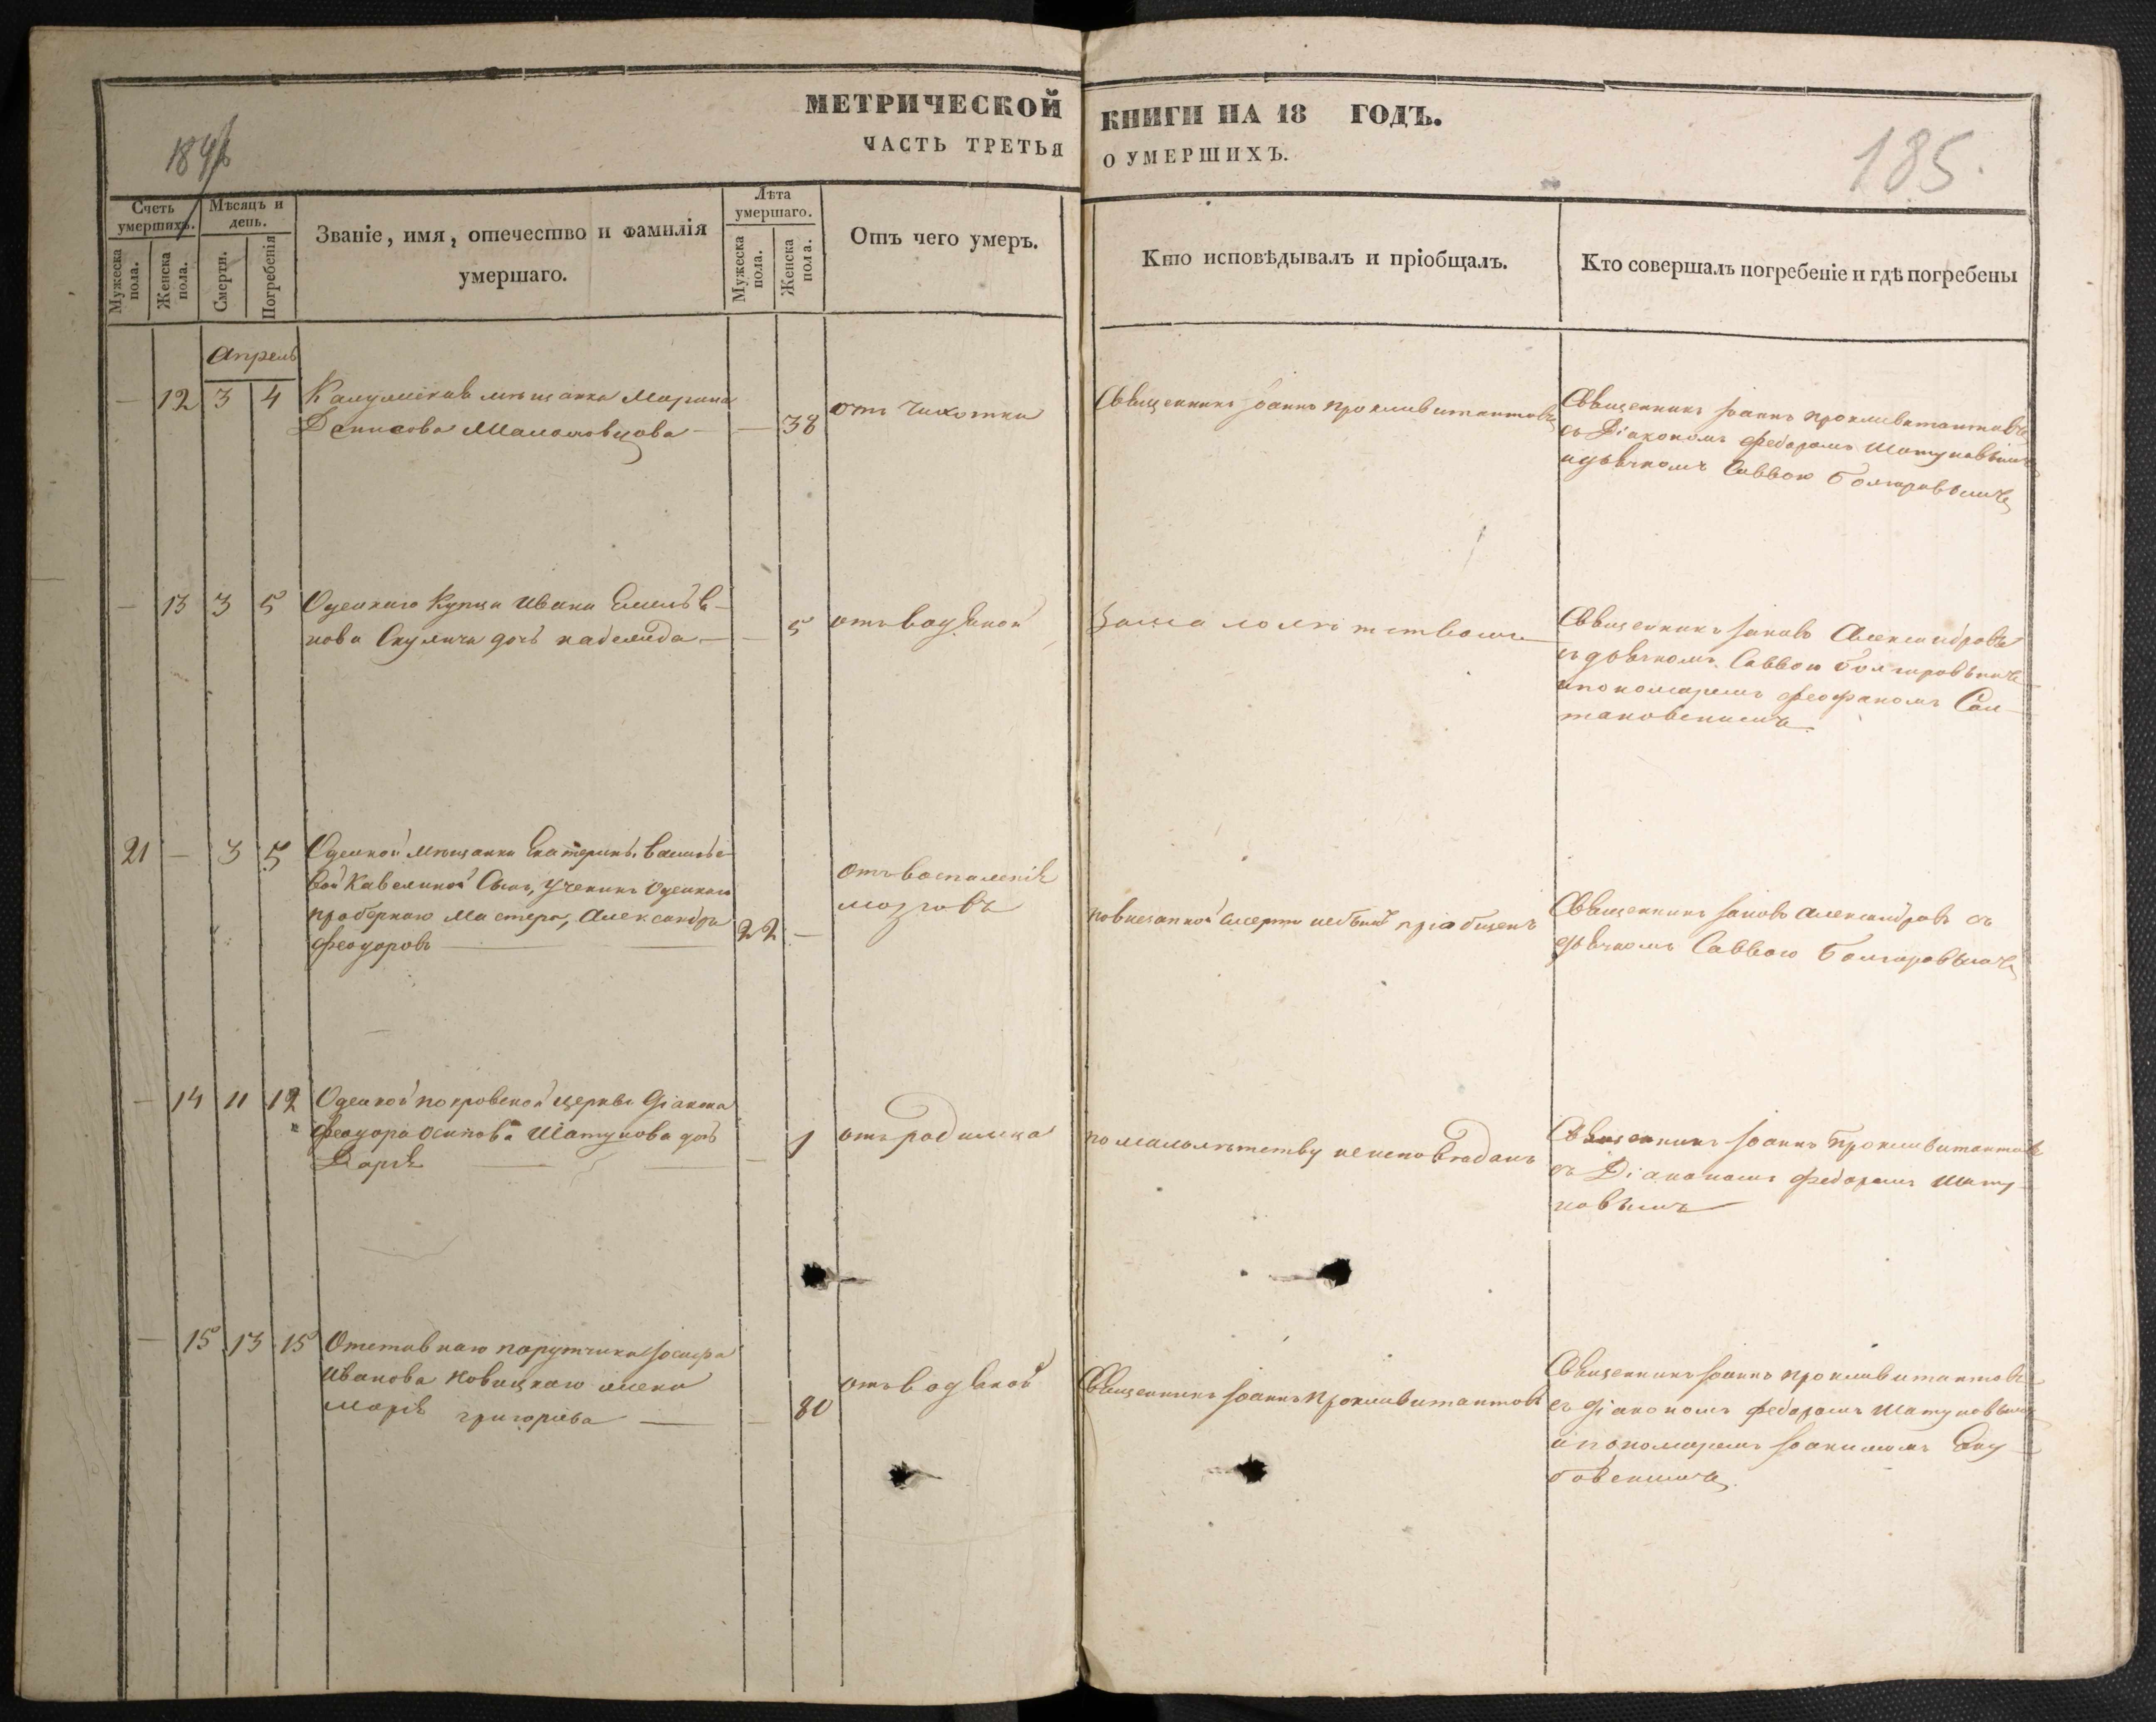 МЕТРИЧЕСКОЙ КНИГИ НА 18 ГОДЪ.
ЧАСТЬ ТРЕТЬЯ О УМЕРШИХЪ.
185.
Счетъ умершихъ.
Мужеска пола.
Женска пола.
Мѣсяцъ и день.
Смерти.
Погребенія
Званіе, имя, отечество и фамилія
умершаго.
Лѣта умершаго.
Мужеска пола.
Женска пола.
Отъ чего умеръ.
Кто исповѣдывалъ и пріобщалъ.
Кто совершалъ погребеніе и гдѣ погребены
Апрель
— 12 3 4
мѣщанка Марина
Денисова
— 38
отъ чихотки
Священникъ Іоаннъ
Священникъ Іоаннъ
съ Діакономъ Федоромъ Шатуновымъ
и дьячкомъ Саввою Болгаровымъ
— 13 3 5
Одескаго Купца Ивана
дочь
— 5
отъ водяной
Священникъ Іаковъ Александровъ
съ дьячкомъ Саввою Болгаровымъ
и пономаремъ Феофаномъ
21 — 3 5
Одеской Мѣщанки Екатерины Василье-
вой Кавелиной Сынъ, ученикъ Одескаго
пробернаго Мастера, Александръ
Феодоровъ
22 —
отъ воспаленія
мозговъ
по внезапной смерти небылъ пріобщенъ
Священникъ Іаковъ Александровъ съ
дьячкомъ Саввою Болгаровымъ
— 14 11 12
Одеской Покровской церкви Діакона
Феодора Осипова Шатунова дочь
Дарія
— 1
отъ родимца
по малолѣтству неисповѣданъ
Священникъ Іоаннъ
съ Діакономъ Федоромъ Шату-
новымъ
— 15 13 15
Отставнаго порутчика Іосифа
Иванова Новицкаго жена
Марія Григорiева
— 80
отъ водяной
Священникъ Іоаннъ
Священникъ Іоаннъ
съ Діакономъ Федоромъ Шатуновымъ
и пономаремъ Іоакимомъ